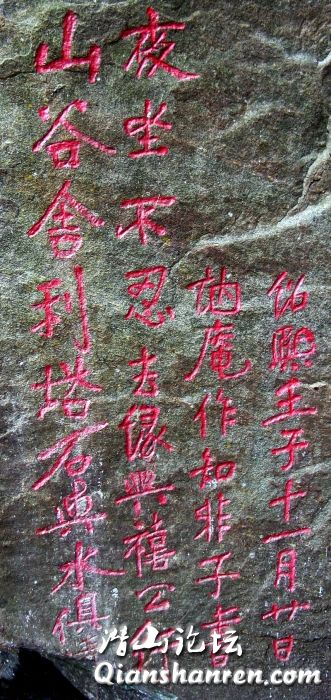 山谷舍利塔石與水俱
夜坐不忍去緣與禧公
庵作知非子書
紹熙壬子十一月廿日
潜山论坛
Qianshanren.com